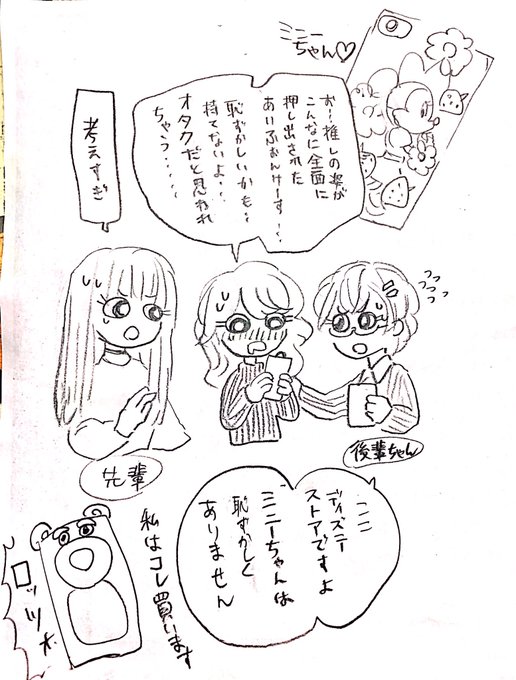 ミニー
ちゃん♡
お…推しの姿が
こんなに全面に
押し出された
あいふぉんけーす…
恥ずかしいかも…
持てないよ…
オタクだと思われ
ちゃう……
考えすぎ
先輩
後輩ちゃん
ここ
ディズニー
ストアですよ
ミニーちゃんは
恥ずかしく
ありません
私はコレ買います
ロッツォ